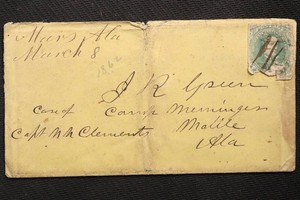 Mars, Ala
March 8
1862
J R Green
Care of Camp Memminger
Capt N N Clements Mobile
Ala